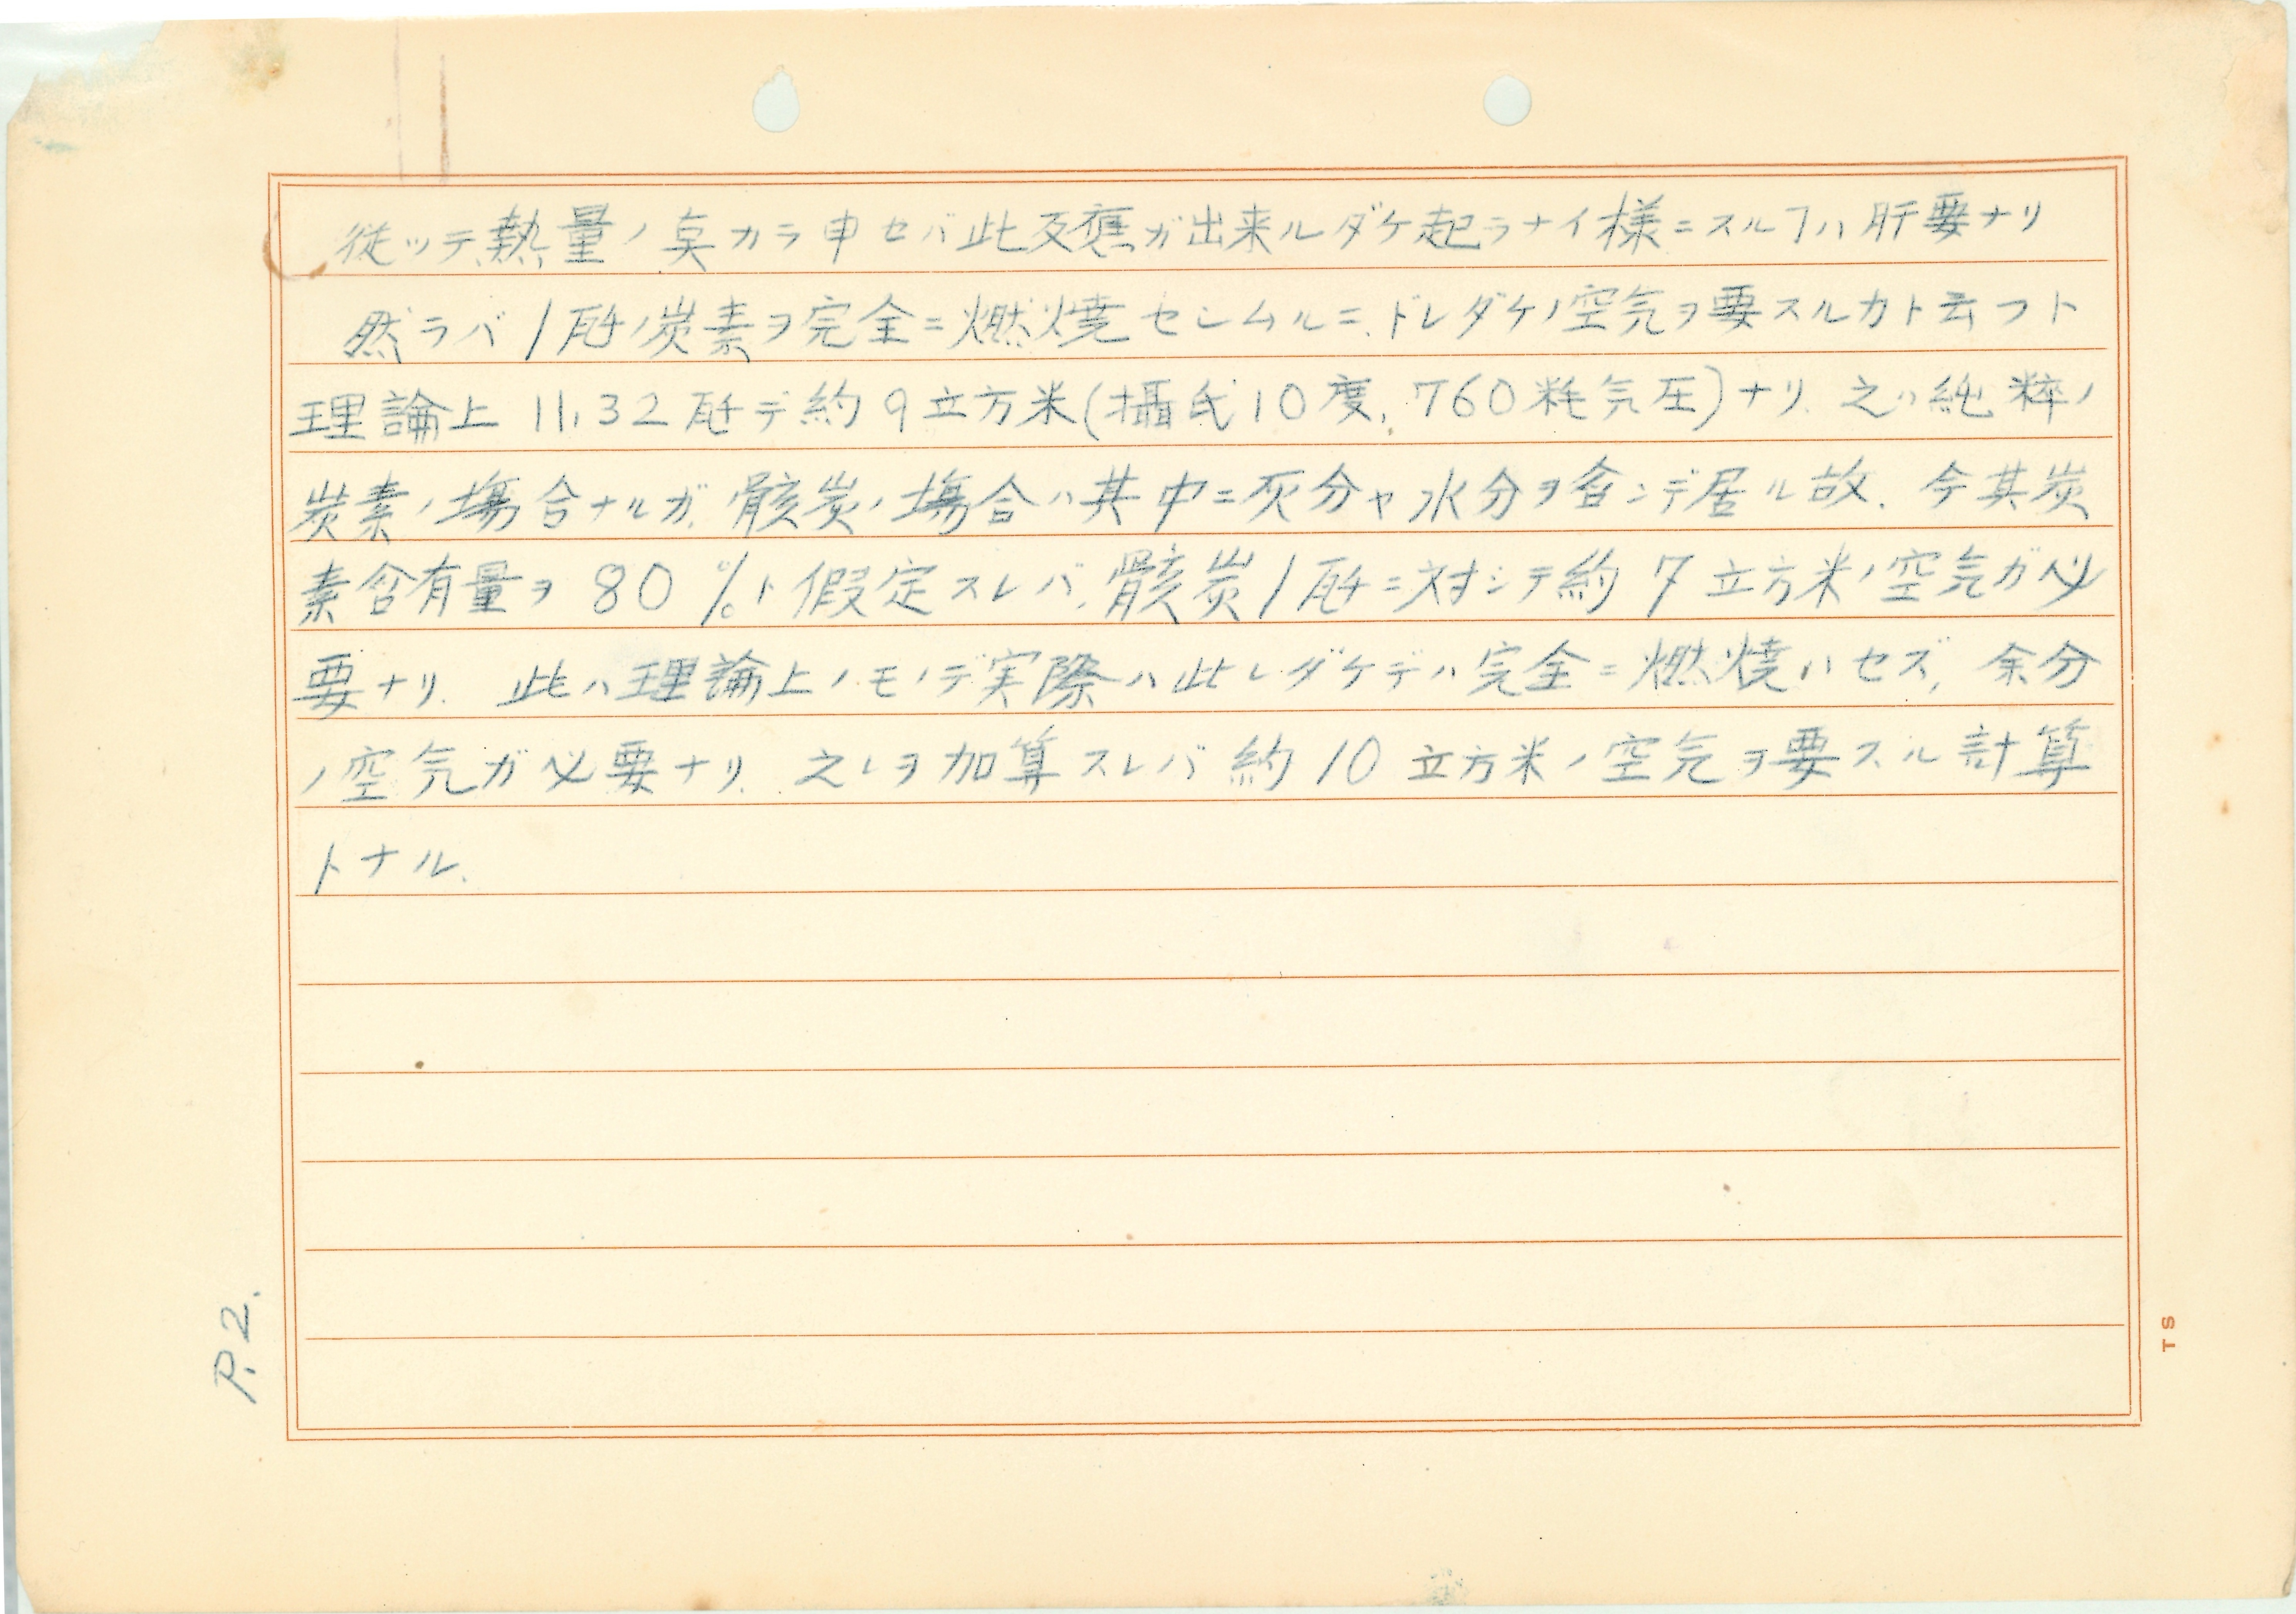 従ッテ、熱量ノ点カラ申セバ此反應ガ出来ルダケ起ラナイ様ニスルヿハ肝要ナリ
然ラバ1瓩ノ炭素ヲ完全ニ燃焼セシムルニ、ドレダケノ空気ヲ要スルカト云フト
理論上11.32瓩デ約9立方米(攝氏10度、760粍気圧)ナリ、之ハ純粋ノ
炭素ノ場合ナルガ、骸炭ノ場合ハ其中ニ灰分ヤ水分ヲ含ンデ居ル故、今其炭
素含有量ヲ80%ト假定スレバ、骸炭1瓩ニ対シテ約7立方米ノ空気ガ必
要ナリ、此ハ理論上ノモノデ実際ハ此レダケデハ完全ニ燃焼ハセズ、余分
ノ空気ガ必要ナリ、之レヲ加算スレバ約10立方米ノ空気ヲ要スル計算
トナル、
P.2.
TS